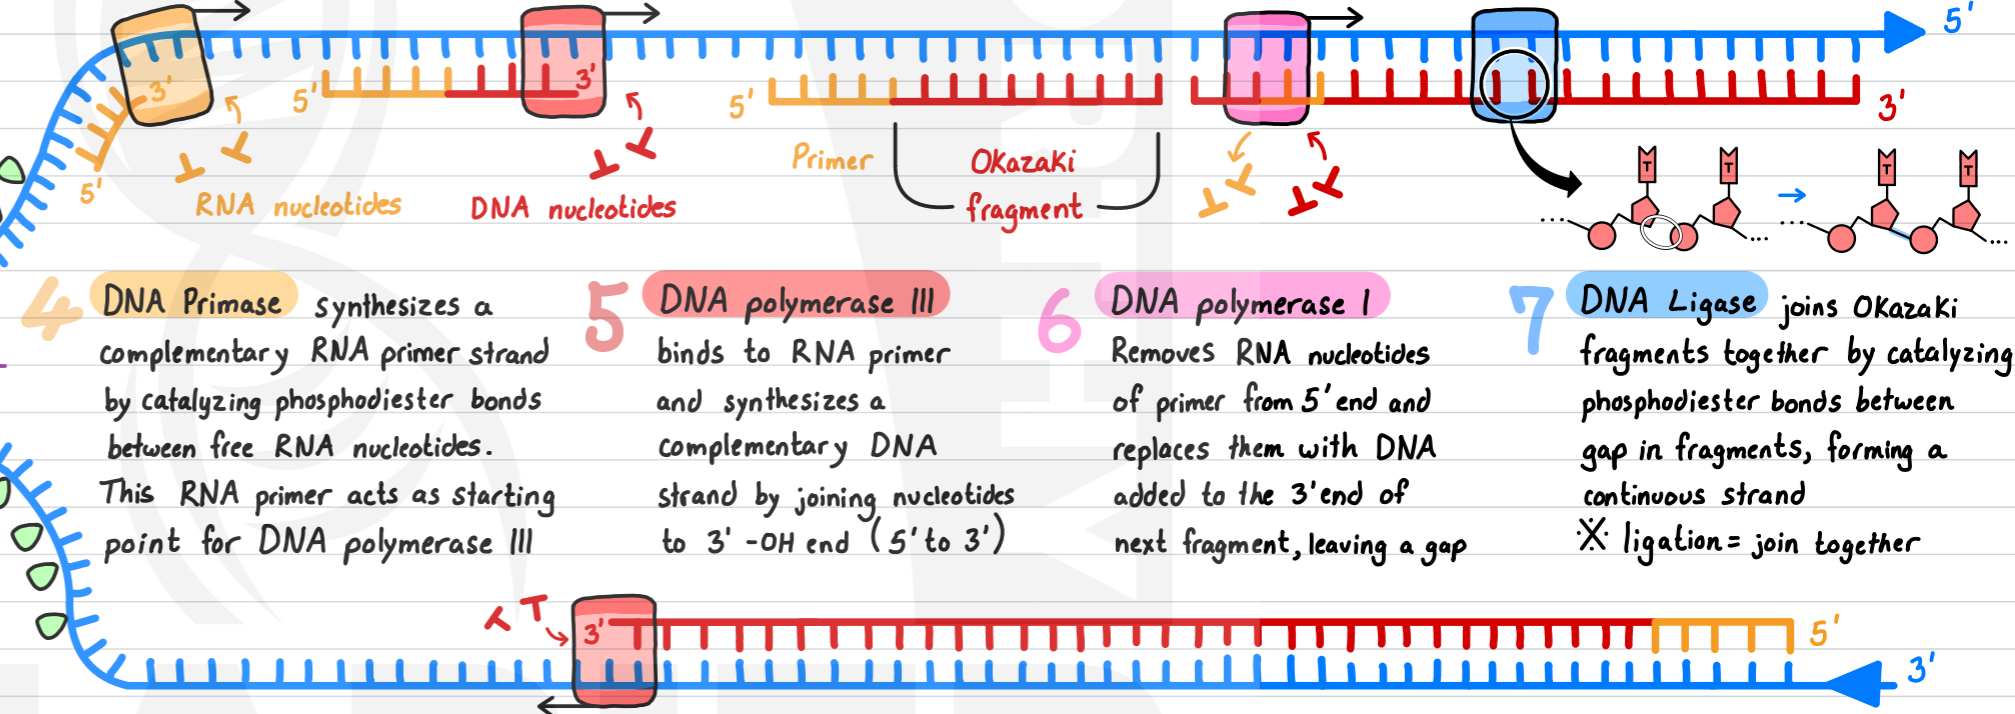 5'
3'
3'
5'
5'
3'
5'
RNA nucleotides
DNA nucleotides
Primer
Okazaki
fragment
T
T
T
T
4 DNA Primase synthesizes a
complementary RNA primer strand
by catalyzing phosphodiester bonds
between free RNA nucleotides.
This RNA primer acts as starting
point for DNA polymerase III
5 DNA polymerase III
binds to RNA primer
and synthesizes a
complementary DNA
strand by joining nucleotides
to 3' -OH end (5' to 3')
6 DNA polymerase I
Removes RNA nucleotides
of primer from 5' end and
replaces them with DNA
added to the 3' end of
next fragment, leaving a gap
7 DNA Ligase joins Okazaki
fragments together by catalyzing
phosphodiester bonds between
gap in fragments, forming a
continuous strand
※ ligation = join together
3'
5'
3'